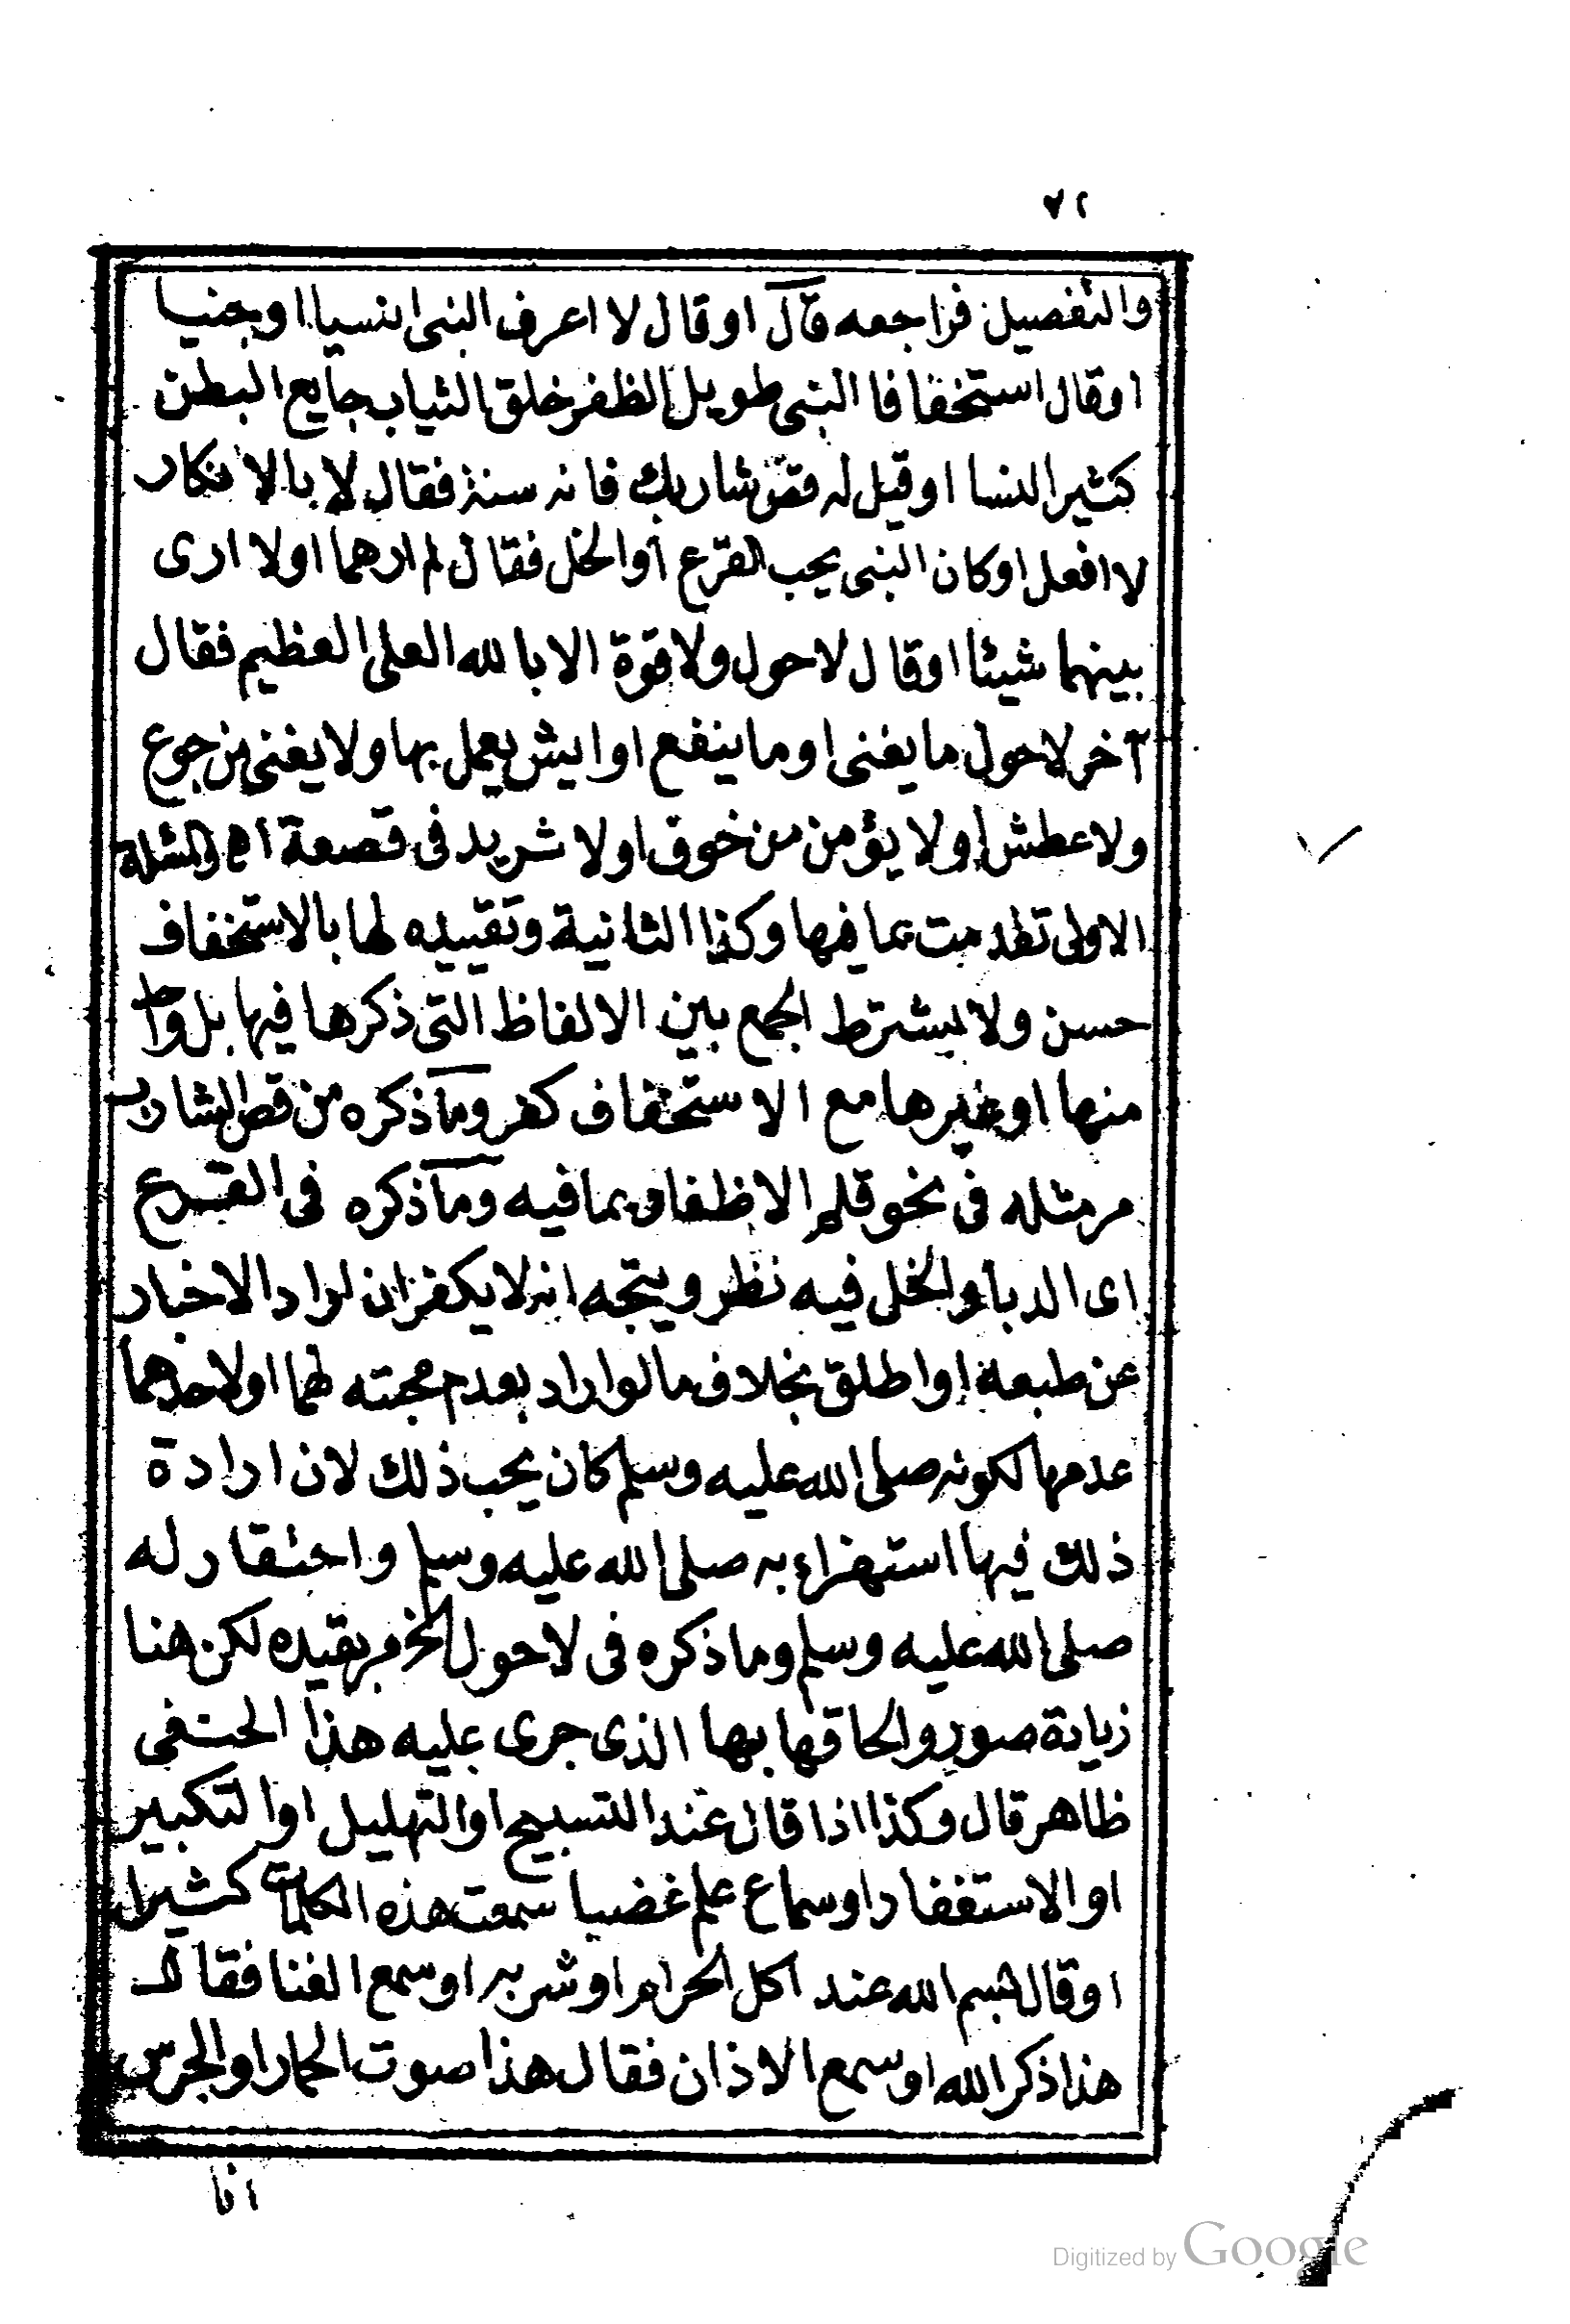 ٧٢
والتفصيل فراجعه قال او قال لا اعرف النبى انسيا او جنيا
او قال استخفافا النبى طويل الظفر خلق الثياب جايع البطن
كثير النسا او قيل له قص شاربك فانه سنة فقال لا بالانكار
لا افعل او كان النبى يحب القرع او الخل فقال لم ارهما او لا ارى
بينهما شيئا او قال لا حول ولا قوة الا بالله العلى العظيم فقال
آخر لا حول ما يغنى او ما ينفع او ايش يعمل بها ولا يغنى من جوع
ولا عطش او لا يؤمن من خوف او لا ثريد فى قصعة اه والمسئلة
الاولى تقدمت بما فيها وكذا الثانية وتقييده لها بالاستخفاف
حسن ولا يشترط الجمع بين الالفاظ التى ذكرها فيها بل واحد
منها او غيرها مع الاستخفاف كفر وما ذكره من قص الشارب
مر مثله فى نحو قلم الاظفار بما فيه وما ذكره فى القرع
اى الدبا والخل فيه نظر ويتجه انه لا يكفر ان اراد الاخبار
عن طبعه او اطلق بخلاف ما لو اراد بعدم محبته لهما او لاحدهما
عدمها لكونه صلى الله عليه وسلم كان يحب ذلك لان ارادة
ذلك فيها استهزاء به صلى الله عليه وسلم واحتقار له
صلى الله عليه وسلم وما ذكره فى لا حول الخ مر بقيده لكن هنا
زيادة صور والحاقها بها الذى جرى عليه هذا الحنفى
ظاهر قال وكذا اذا قال عند التسبيح او التهليل او التكبير
او الاستغفار او سماع علم غضبا سمعت هذه الكلمات كثيرا
او قال بسم الله عند اكل الحرام او شربه او سمع الغنا فقال
هذا ذكر الله او سمع الاذان فقال هذا صوت الحمار او الجرس
انا
Digitized by Google